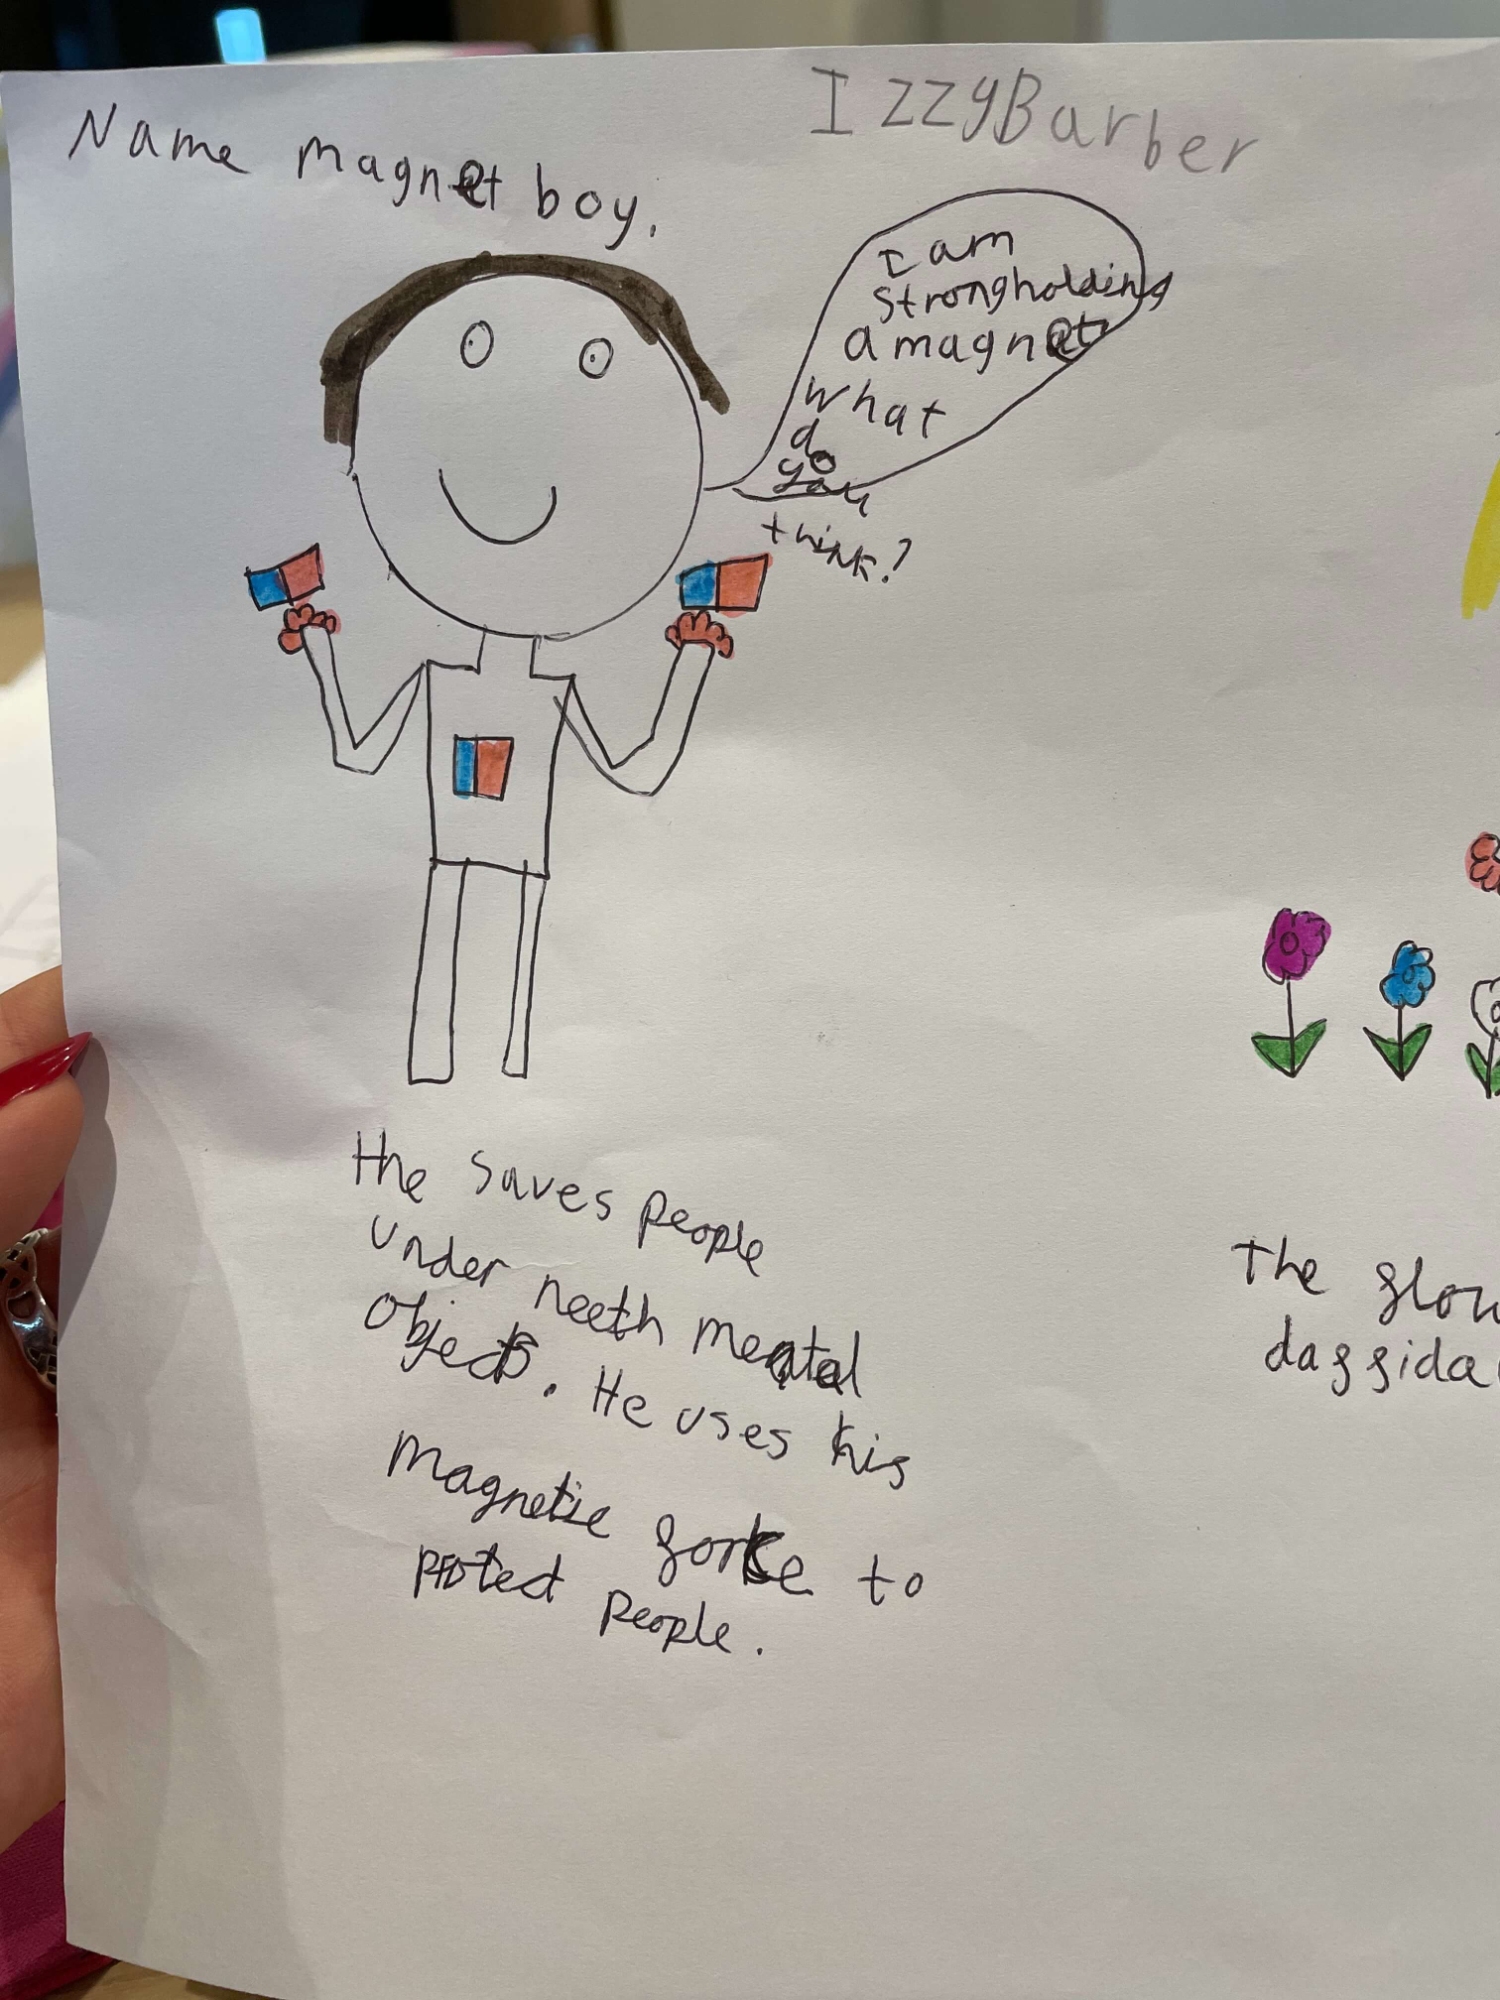 IzzyBarber
Name magnet boy.
I am
strongholding
a magnet
what
do
you
think?
Hhe saves people
under neeth meatal
objects. He uses his
magnetic forke to
protect people.
The glow
daffida